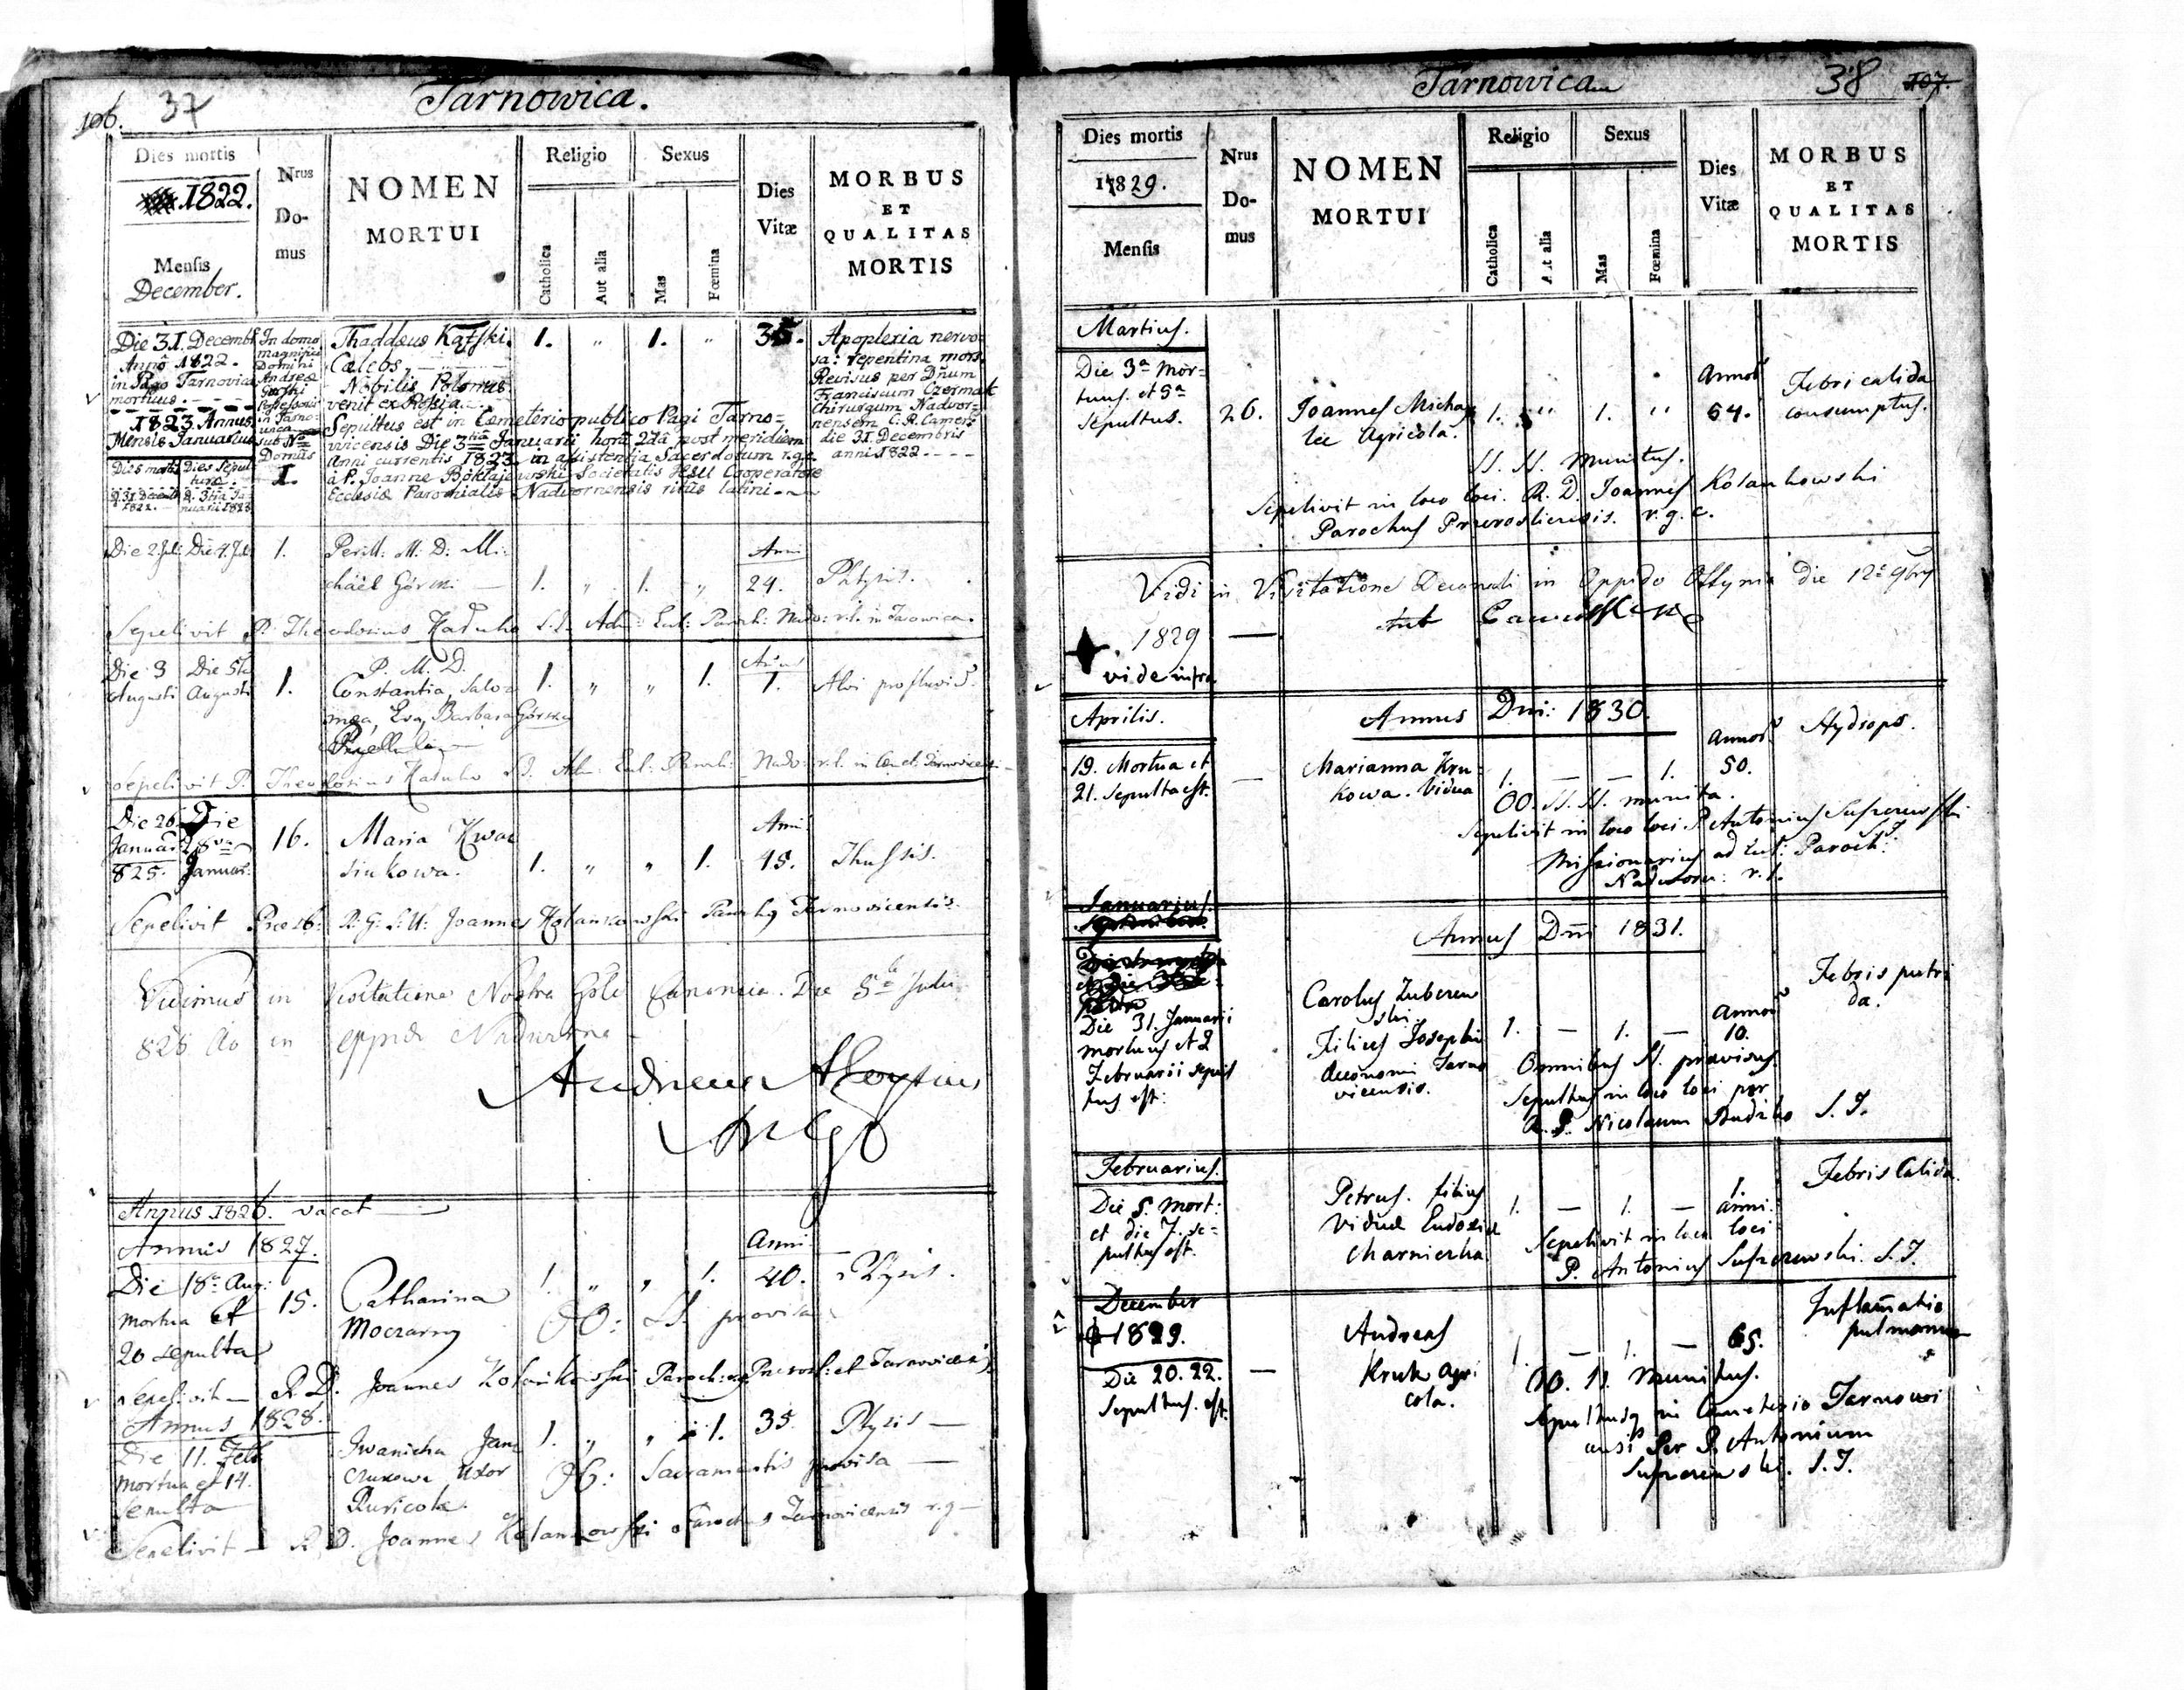 106. 37
Tarnowica.
Dies mortis
1822.
Mensis
December.
Nrus Do-mus
NOMEN MORTUI
Religio
Catholica
Aut alia
Sexus
Mas
Fœmina
Dies Vitæ
MORBUS ET QUALITAS MORTIS
Die 31. Decembr.
Anno 1822.
in Pago Tarnovica
mortuus.
1823 Annus
Mensis Januarius
Dies mortis
Dies Sepulturæ.
In domo
magnifici
Domini
Andreæ
Gorski
Possessoris
in Tarno-
vica
sub No
Domus
1.
Thaddæus Kątski.
Cælebs.
Nobilis Polonus
venit ex Rossia.
Sepultus est in Cæmeterio publico Pagi Tarno-
vicensis Die 3tia Januarii horâ 2dâ post meridiem
Anni currentis 1823. in assistentia Sacerdotum r.g.c.
à P. Joanne Boklajewski Societatis Jesu Cooperatore
Ecclesiæ Parochialis Nadvornensis ritûs latini.
1. „ 1. „ 35.
Apoplexia nervo-
sa: repentina mors.
Revisus per Dnum
Franciscum Czermak
Chirurgum Nadvor-
nensem C. R. Camer:
die 31. Decembris
anni 1822.
Die 2. Jul: Die 4. Jul:
1.
Perill: M: D: Mi-
chäel Górski
1. „ 1. „
Anni
24.
Phtysis.
Sepelivit P. Theodosius Kaduko S.J. Adm: Eccl: Paroch: Nadw: r.l. in Tarnowica.
Die 3 Augusti
Die 5ta Augusti
1.
P. M. D.
Constantia, Salo-
mea, Eva, Barbara Górska
1. „ „ 1.
1.
Alvi profluvio.
Sepelivit P. Theodosius Kaduko S.J. Adm: Eccl: Paroch: Nadw: r.l. in Cæmet: Tarnovicensi
Die 26 Januar 825.
Die 28va Januar.
16.
Maria Kwac
sinkowa.
1. „ „ 1.
Anni
45.
Thussis.
Sepelivit Præsb: R: G: Joannes Kolankowski Parochus Tarnovicensis.
Vidimus in Visitatione Nostra Gnli Canonica. Die 5ta Julii
828 Ao in oppido Nadworna
Andreas Aloysius
Annus 1826. vacat
Annus 1827.
Die 18a Aug:
mortua et
20 sepulta
15.
Catharina
Moczarny
1. „ „ 1.
Anni
40.
Ptysis.
OO: SS. provisa
Sepelivit R.D. Joannes Kolankowski Paroch: et Tarnovicen:
Annus 1828.
Die 11. Feb
mortua et 14.
sepulta
Iwanicha Jan
czukowa Uxor
Ruricolæ.
1. „ „ 1. 35.
Ptysis
OO: Sacramentis provisa
Sepelivit R. D. Joannes Kolankowski Parochus Tarnovicensis r.g.
Tarnowica
38 107.
Dies mortis
1829.
Mensis
Nrus Do-mus
NOMEN MORTUI
Religio
Catholica
Aut alia
Sexus
Mas
Fœmina
Dies Vitæ
MORBUS ET QUALITAS MORTIS
Martius.
Die 3a Mor-
tuus. et 5a
Sepultus.
26.
Joannes Michay
Agricola.
1. „ 1. „
Annor
64.
Febri calida
consumptus.
SS. SS. munitus.
Sepelivit in loco loci. R. D. Joannes Kolankowski
Parochus Przeroslienesis. r. g. c.
Vidi in Visitatione Decanali in Oppido Ottynia die 12a 9bris
1829
vide infra
Aprilis.
Annus Dni: 1830.
19. Mortua et
21. Sepulta est.
Marianna Kru-
kowa. Vidua
1. — — 1.
Annor
50.
Hydrops.
OO. SS. SS. munita.
Sepelivit in loco loci P. Antonius Suszczewski
Missionarius ad Eccl: Paroch:
Nadworn: r. l.
Januarius.
Annus Dni 1831.
Die 31. Januarii
mortuus et 2
Februarii sepul
tus est:
Carolus Zuberew
ski.
Filius Josephi
Œconomi Tarno
vicensis.
1. — 1. —
Annor
10.
Febris putri
da.
Omnibus SS. provisus
Sepultus in loco loci per
R. P. Nicolaum Budzko S. J.
Februarius.
Die 5. Mort:
et die 7. se-
pultus est.
Petrus. filius
Viduæ Eudoxiæ
Charnierka.
1. — 1. —
1.
anni.
Febris Calida.
Sepelivit in loco loci
P. Antonius Suszczewski. S. J.
December
1829.
Die 20. 22.
Sepultus. est.
Andreas
Kruk Agri
cola.
1. — 1. —
65.
Inflammatio
pulmonum
OO. SS. Munitus.
Sepultusq in Cœmeterio Tarnowi
censi Per P. Antonium
Suszczewski. S. J.